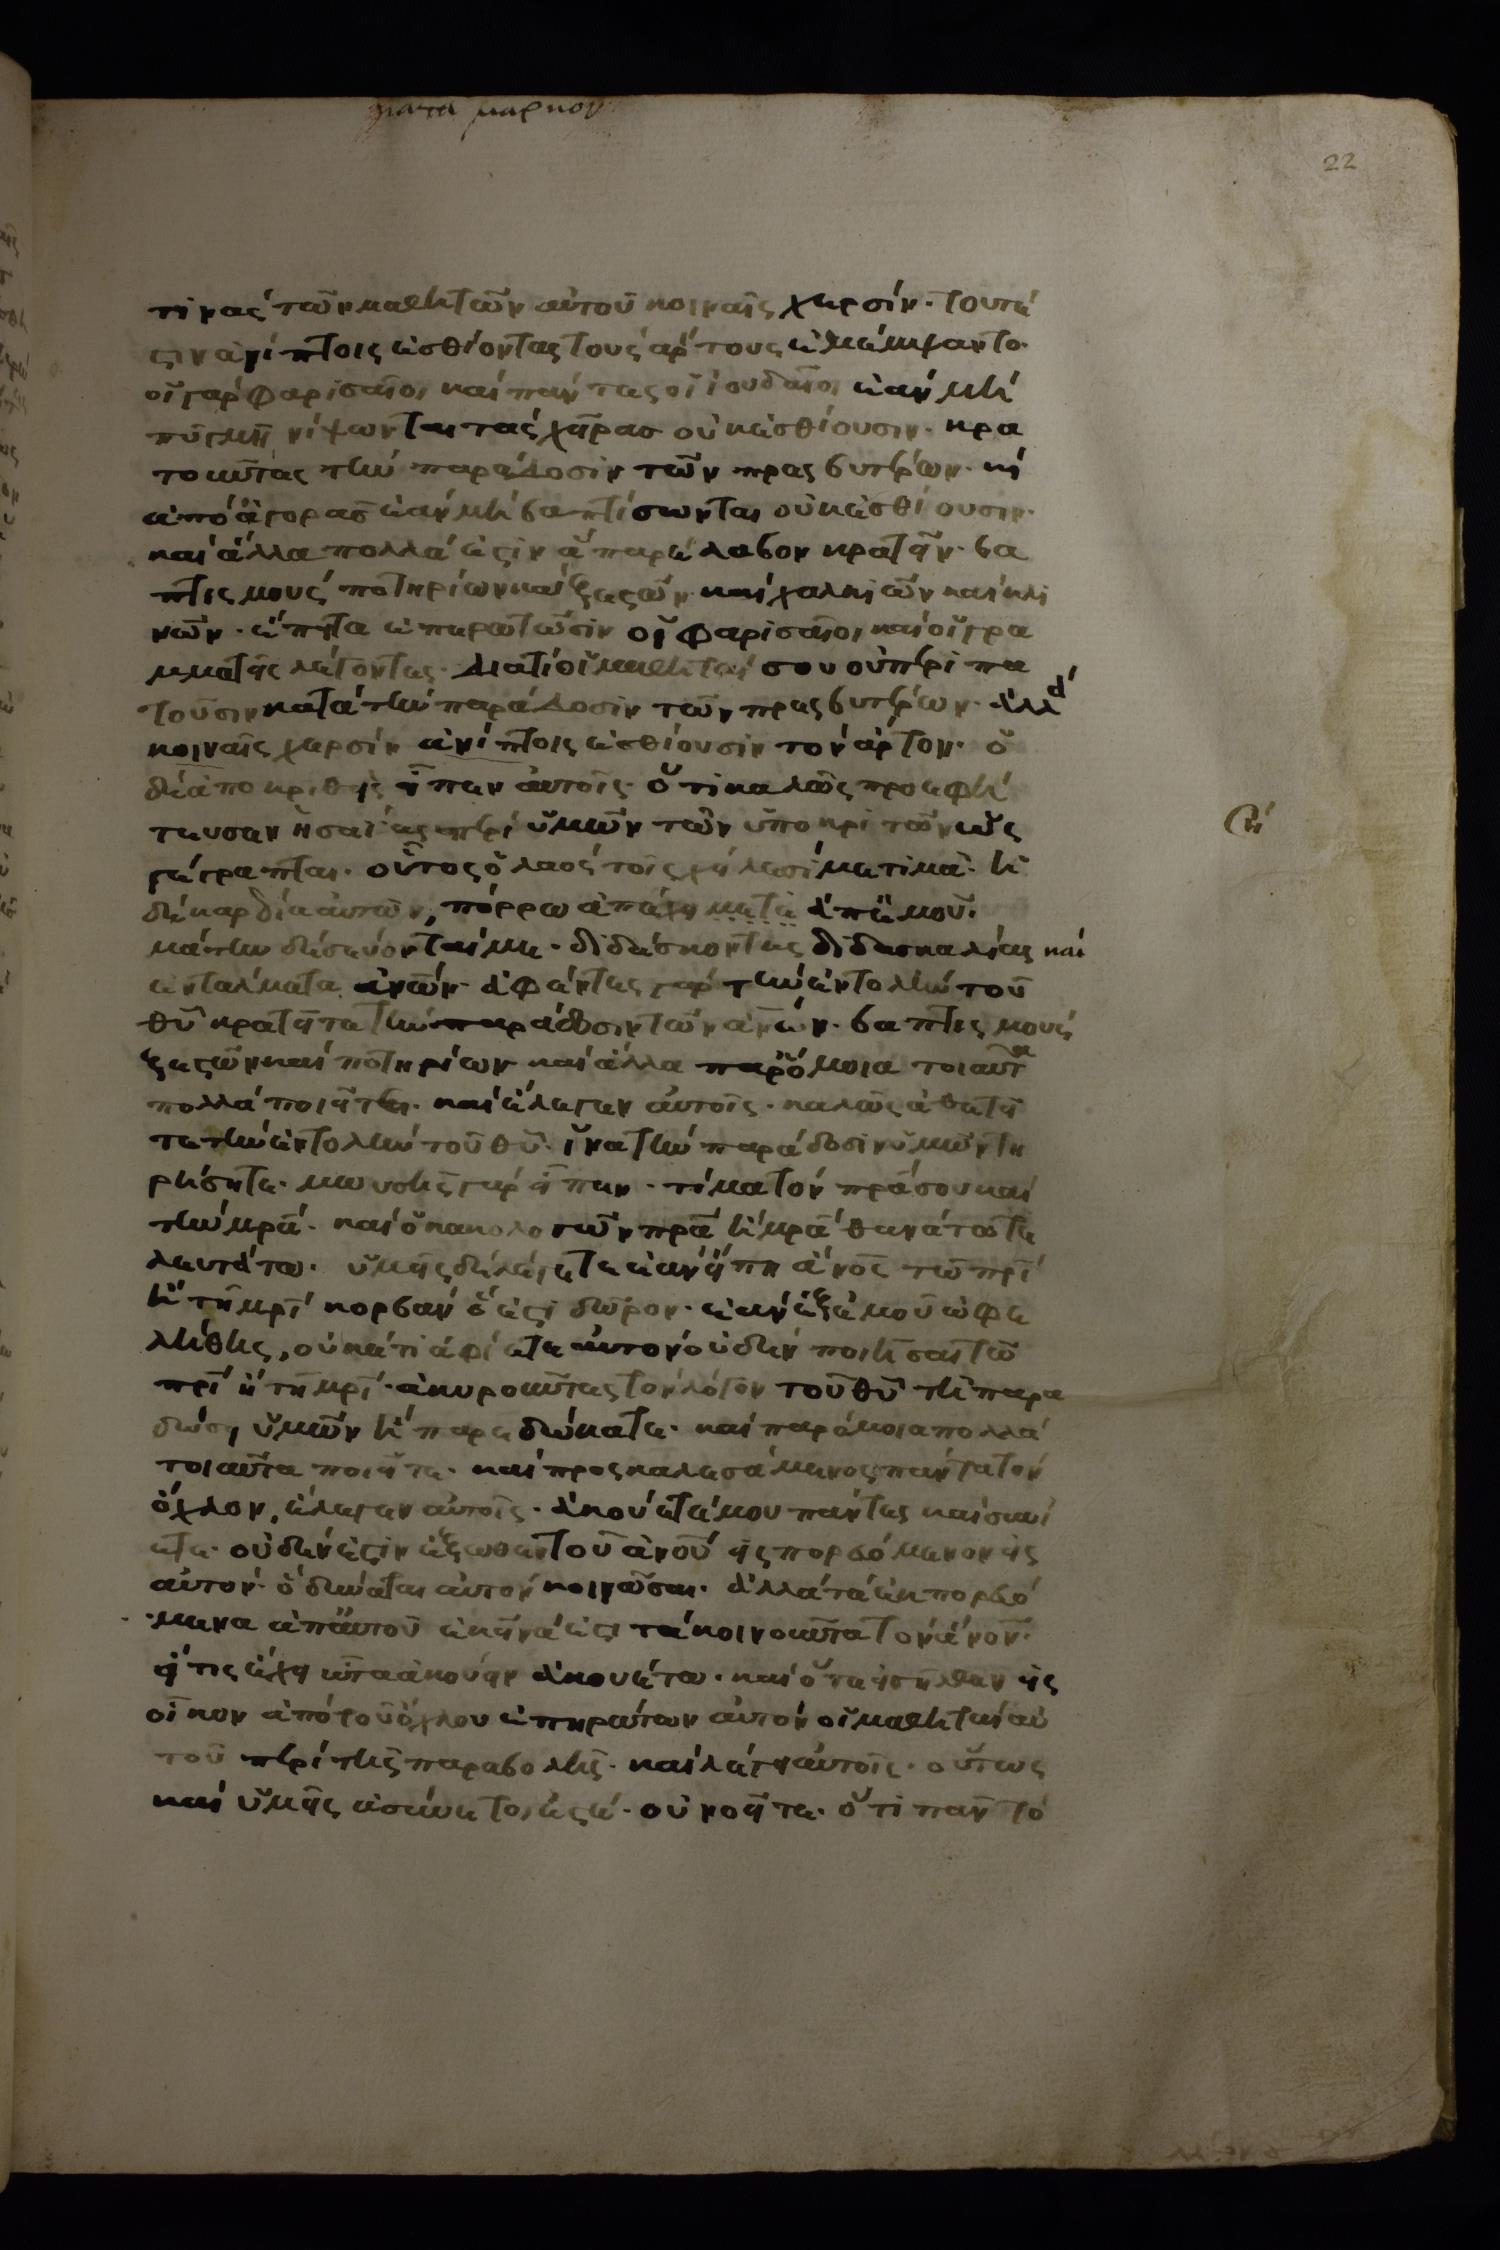 κατα μαρκον
22
τινας τῶν μαθητῶν αὐτοῦ κοιναῖς χερσίν· τουτέ
στιν ἀνίπτοις ἐσθίοντας τοὺς ἄρτους ἐμέμψαντο·
οἱ γὰρ φαρισαῖοι καὶ πάντες οἱ ἰουδαῖοι ἐὰν μὴ
πυγμῆ νίψωνται τὰς χεῖρας οὐκ ἐσθίουσιν· κρα
τοῦντες τὴν παράδοσιν τῶν πρεσβυτέρων· κ
ἀπὸ ἀγορᾶς ἐὰν μὴ βαπτίσωνται οὐκ ἐσθίουσιν·
καὶ ἄλλα πολλά ἐστιν ἃ παρέλαβον κρατεῖν· βα
πτισμοὺς ποτηρίων καὶ ξεστῶν καὶ χαλκίων καὶ κλι
νῶν· ἔπειτα ἐπερωτῶσιν οἱ φαρισαῖοι καὶ οἱ γρα
μματεῖς λέγοντες· διατί οἱ μαθηταί σου οὐ περιπα
τοῦσιν κατὰ τὴν παράδοσιν τῶν πρεσβυτέρων· ἀλλὰ
κοιναῖς χερσὶν ἀνίπτοις ἐσθίουσιν τὸν ἄρτον· ὁ
δὲ ἀποκριθεὶς εἶπεν αὐτοῖς· ὅτι καλῶς προεφή
τευσεν ἡσαΐας περὶ ὑμῶν τῶν ὑποκριτῶν ὡς
γέγραπται· οὗτος ὁ λαὸς τοῖς χείλεσί με τιμᾶ· ἡ
δὲ καρδία αὐτῶν, πόρρω ἀπέχει μετὰ ἀπ' ἐμοῦ·
μάτην δὲ σέβονταί με· διδάσκοντες διδασκαλίας καὶ
ἐντάλματα ἀνῶν· ἀφέντες γὰρ τὴν ἐντολὴν τοῦ
θῦ κρατεῖτε τὴν παράδοσιν τῶν ἀνῶν· βαπτισμοὺς
ξεστῶν καὶ ποτηρίων καὶ ἄλλα παρόμοια τοιαῦτα
πολλὰ ποιεῖτε· καὶ ἔλεγεν αὐτοῖς· καλῶς ἀθετεῖ
τε τὴν ἐντολὴν τοῦ θῦ· ἵνα τὴν παράδοσιν ὑμῶν τη
ρήσητε· μωυσῆς γὰρ εἶπεν· τίμα τὸν πρα σου καὶ
τὴν μρα· καὶ ὁ κακολογῶν πρα ἢ μρα θανάτω τε
λευτάτω· ὑμεῖς δὲ λέγετε ἐὰν εἴπη ἄνος τῶ πρι
ἢ τῆ μρι κορβάν ὅ ἐστι δῶρον· ἐὰν ἐξ ἐμοῦ ὠφε
ληθῆς, οὐκέτι ἀφίετε αὐτὸν οὐδὲν ποιῆσαι τῶ
πρι ἢ τῆ μρι· ἀκυροῦντες τὸν λόγον τοῦ θῦ τῆ παρα
δώσει ὑμῶν ἢ παρεδώκατε· καὶ παρόμοια πολλὰ
τοιαῦτα ποιεῖτε· καὶ προσκαλεσάμενος πάντα τὸν
ὄχλον, ἔλεγεν αὐτοῖς· ἀκούετέ μου πάντες καὶ συνί
ετε· οὐδέν ἐστιν ἔξωθεν τοῦ ἀνου εἰσπορευόμενον εἰς
αὐτόν· ὃ δύναται αὐτὸν κοινῶσαι· ἀλλὰ τὰ ἐκπορευό
μενα ἀπ' αὐτοῦ ἐκεῖνά ἐστι τὰ κοινοῦντα τὸν ἄνον·
εἴ τις ἔχει ὦτα ἀκούειν ἀκουέτω· καὶ ὅτε εἰσῆλθεν εἰς
οἶκον ἀπὸ τοῦ ὄχλου ἐπηρώτων αὐτὸν οἱ μαθηταὶ αὐ
τοῦ περὶ τῆς παραβολῆς· καὶ λέγει αὐτοῖς· οὕτως
καὶ ὑμεῖς ἀσύνετοί ἐστέ· οὐ νοεῖτε· ὅτι πᾶν τὸ